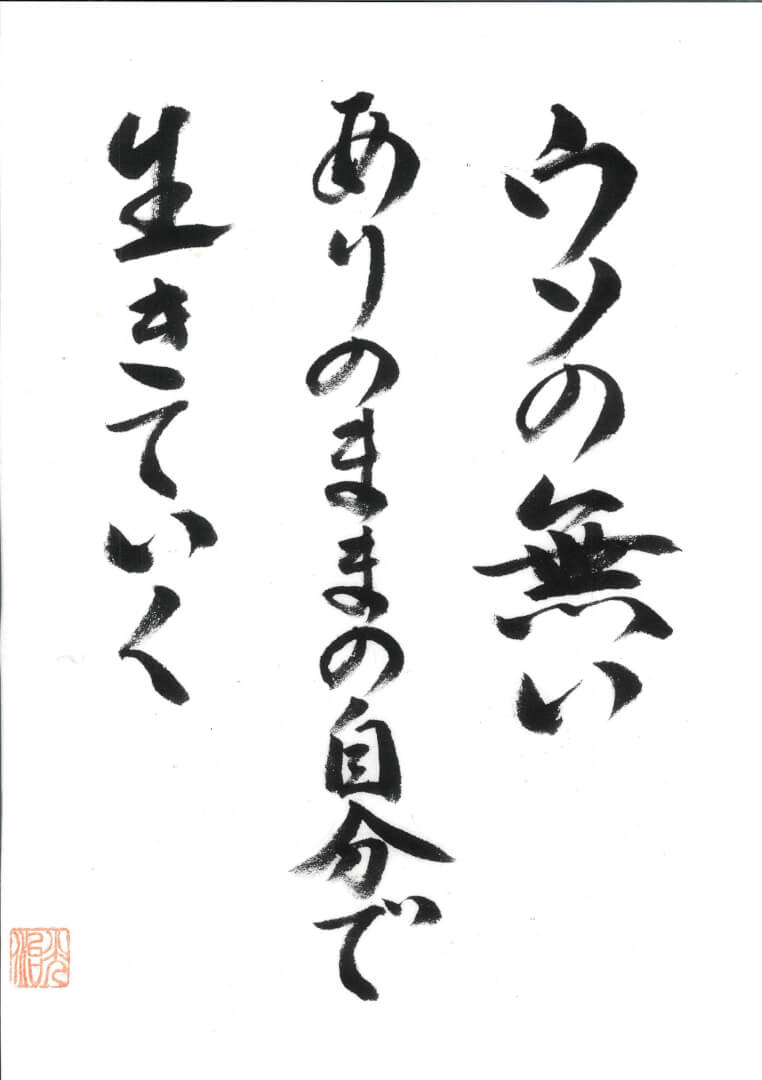 ウソの無い
ありのままの自分で
生きていく